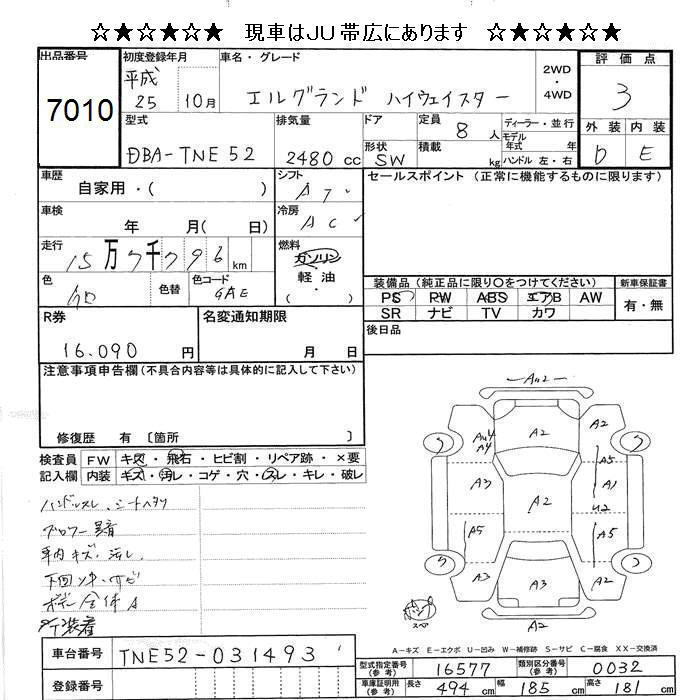 ☆★☆★☆★ 現車はJU帯広にあります ☆★☆★☆★
出品番号
7010
初度登録年月
平成
25 10月
車名・グレード
エルグランド ハイウェイスター
2WD
・
4WD
評価点
3
外装 内装
D E
型式
DBA-TNE52
排気量
2480 cc
ドア
形状
SW
定員
8 人
積載
kg
ディーラー・並行
モデル
年式 年
ハンドル 左・右
車歴
自家用・( )
シフト
AT
車検
年 月( 日)
冷房
AC
走行
15万7千796 km
燃料
ガソリン
軽油
・
( )
色
色替
色コード
GAE
セールスポイント (正常に機能するものに限ります)
装備品 (純正品に限り○をつけてください)
PS PW ABS エアB AW
SR ナビ TV カワ
新車保証書
有・無
後日品
R券
16.090 円
名変通知期限
月 日
注意事項申告欄(不具合内容等は具体的に記入して下さい)
修復歴 有 〔箇所 〕
検査員
記入欄
FW キズ・飛石・ヒビ割・リペア跡・×要
内装 キズ・汚レ・コゲ・穴・スレ・キレ・破レ
ハンドルスレ、シートヘタリ
ブロワー異音
車内キズ・汚レ
下回ソキ・サビ
ボデー全体A
AU2
A2
AU4
A4
A2
A5
A3
A1
A2
U2
A5
A5
A3
A3
A2
A2
スペア
A-キズ E-エクボ U-凹み W-補修跡 S-サビ C-腐食 XX-交換済
車台番号
TNE52-031493
登録番号
型式指定番号
(参考)
16577
類別区分番号
(参考)
0032
車庫証明用
(参考)
長さ 494 cm 幅 185 cm 高さ 181 cm